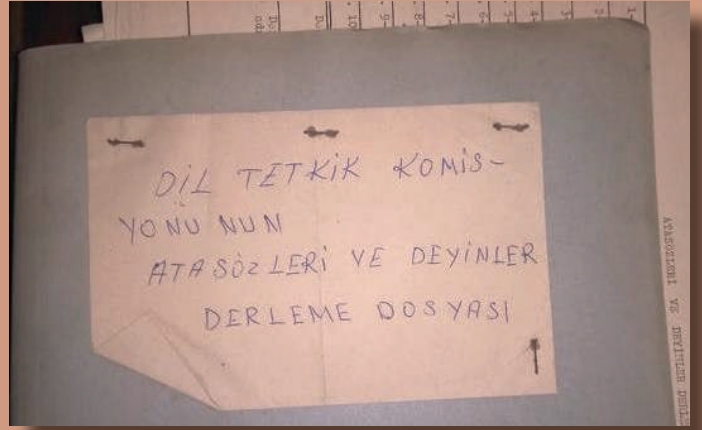 DİL TETKİK KOMİS-
YONU NUN
ATASÖZLERİ VE DEYİNLER
DERLEME DOSYASI
1-
2-
3-
4-
5-
6-
7-
8-
9-
10
ATASÖZLERİ VE DEYİMLER